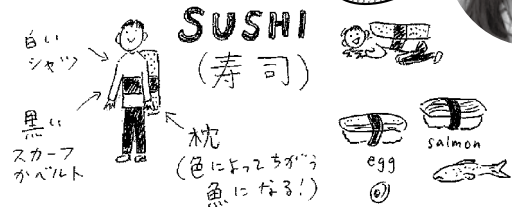 SUSHI
(寿司)
白い
シャツ
黒い
スカーフ
かベルト
枕
(色によってちがう
魚になる!)
egg
salmon